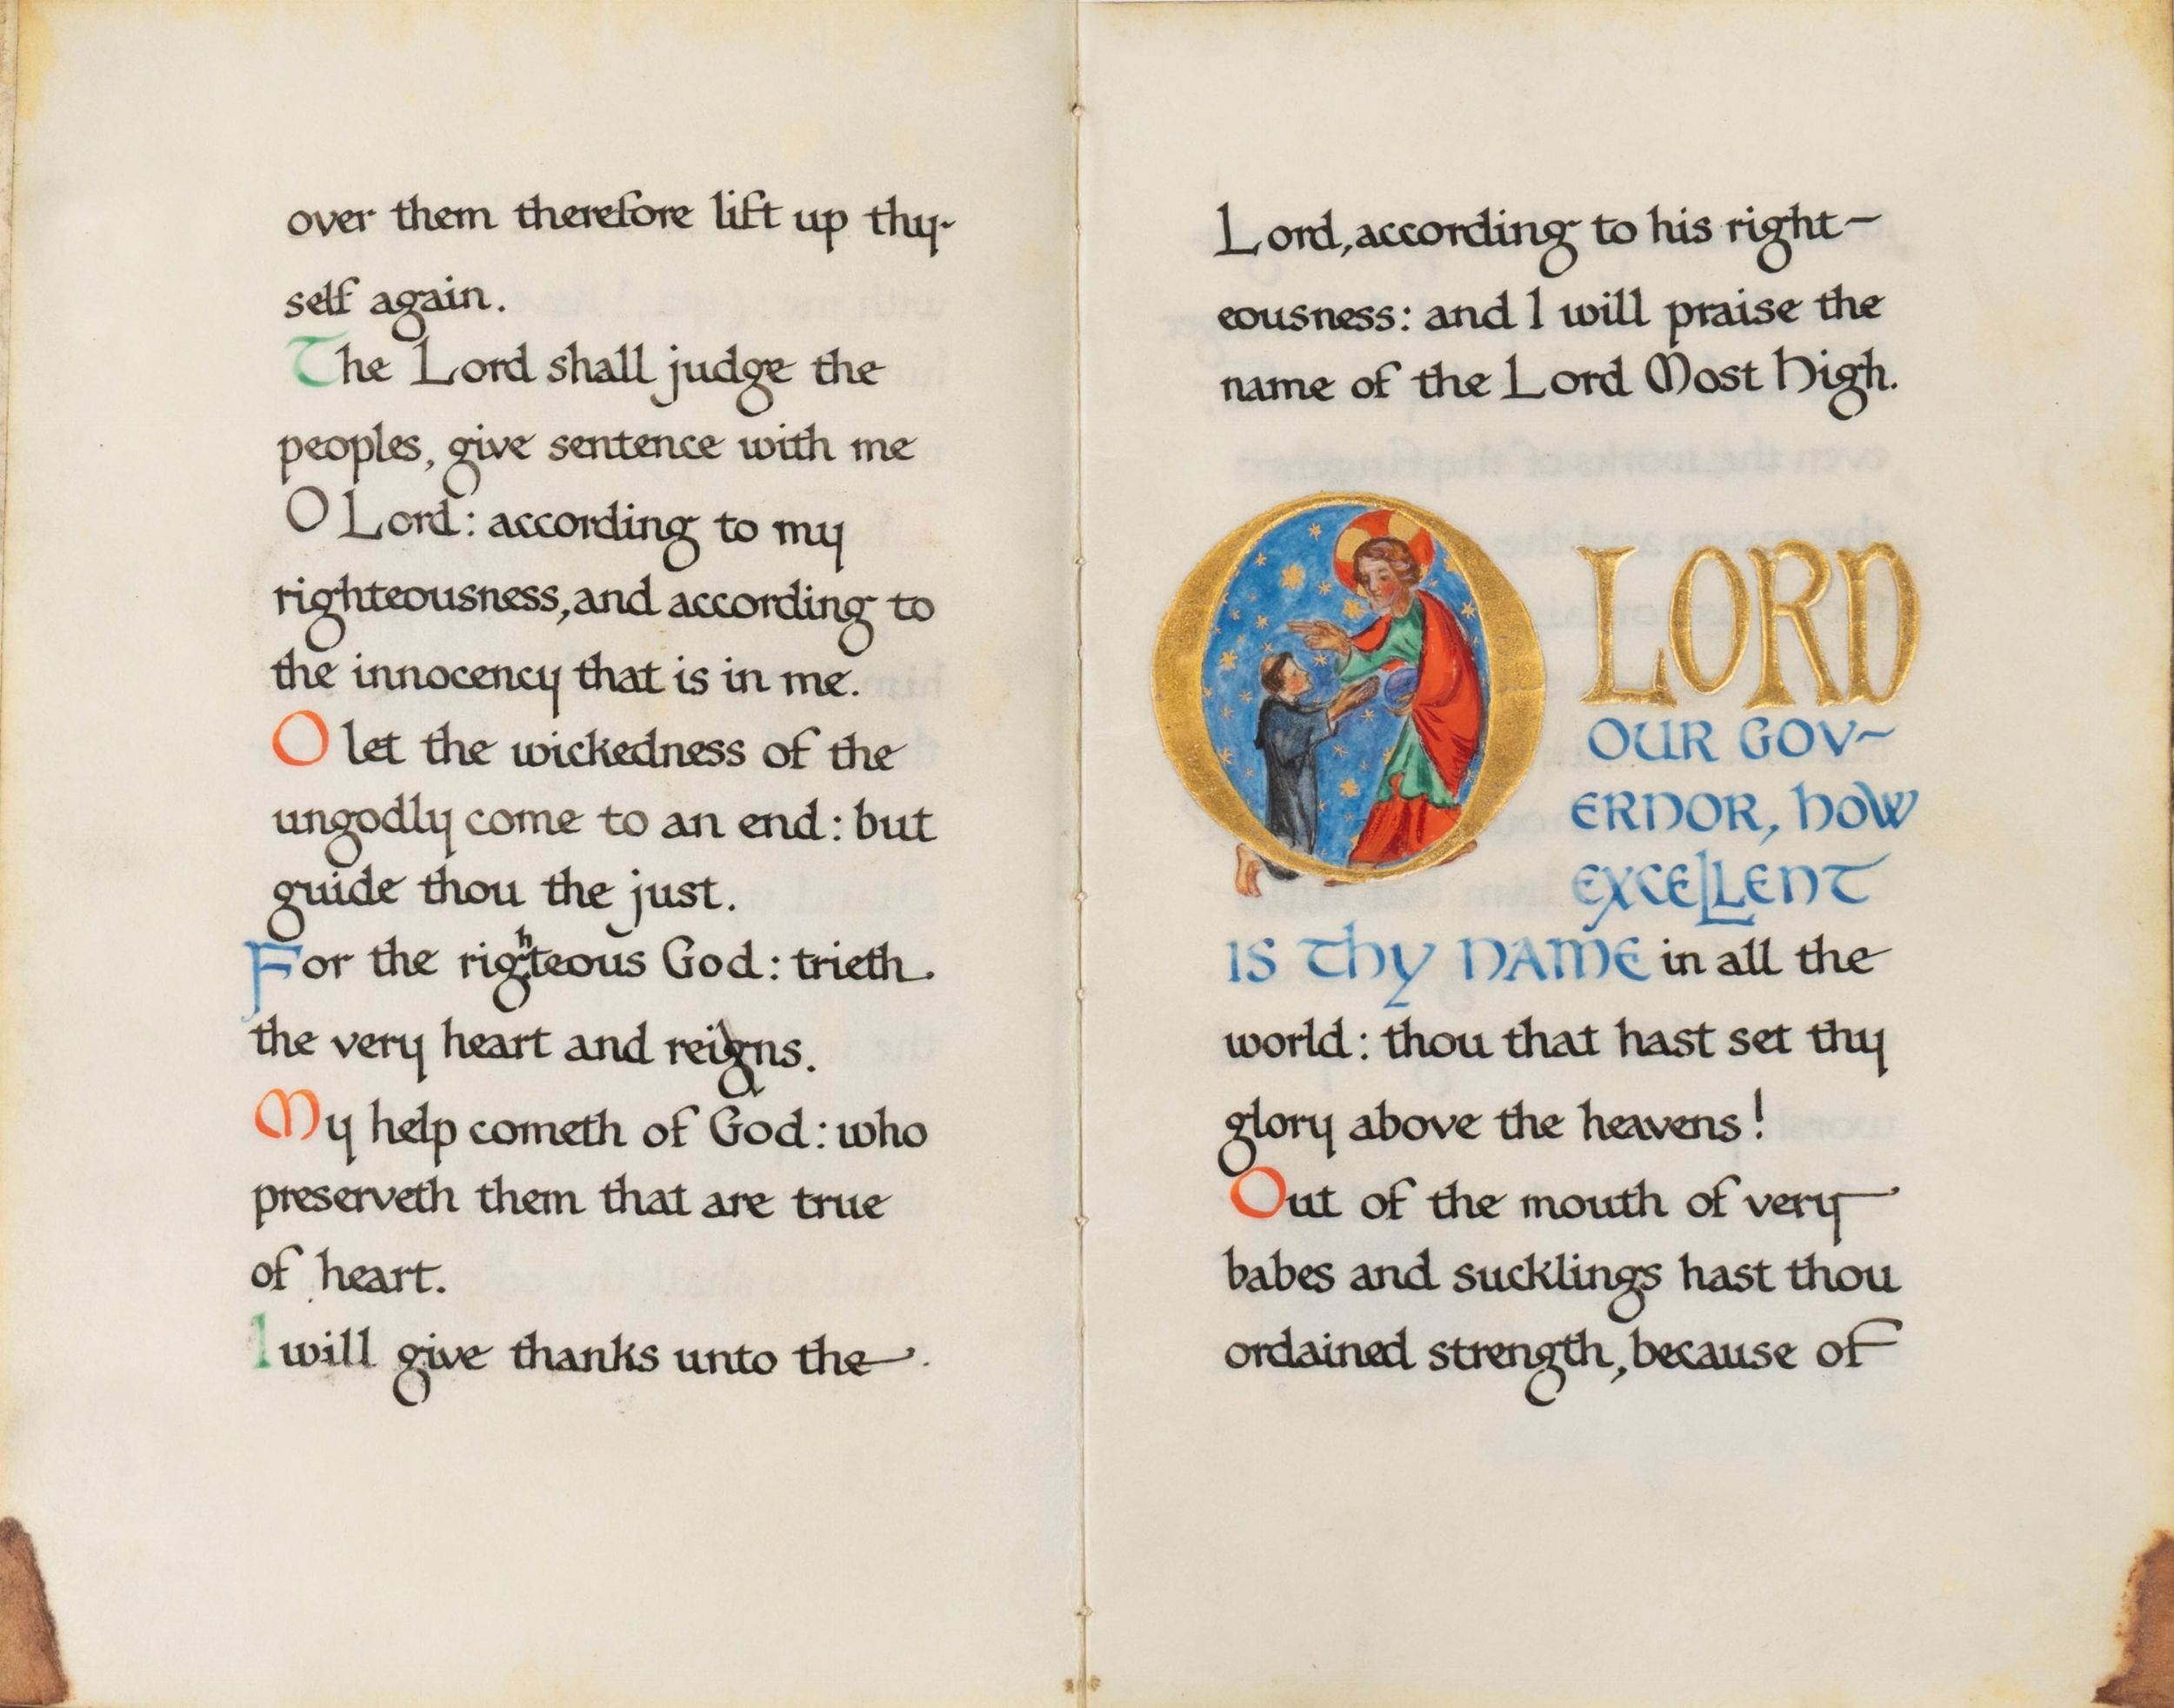 over them therefore lift up thy-
self again.
The Lord shall judge the
peoples, give sentence with me
O Lord: according to my
righteousness, and according to
the innocency that is in me.
O let the wickedness of the
ungodly come to an end: but
guide thou the just.
For the righteous God: trieth
the very heart and reigns.
My help cometh of God: who
preserveth them that are true
of heart.
I will give thanks unto the
Lord, according to his right-
eousness: and I will praise the
name of the Lord Most High.
O LORD
OUR GOV-
ERNOR, HOW
EXCELLENT
IS THY NAME in all the
world: thou that hast set thy
glory above the heavens!
Out of the mouth of very
babes and sucklings hast thou
ordained strength, because of